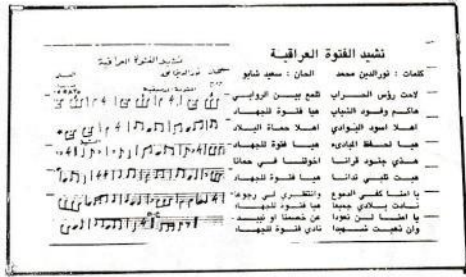 نشيد الفتوة العراقية
كلمات : نورالدين محمد الحان : سعيد شابو
لاحت رؤس الحراب تلمع بين الروابي
هاكم وفود الشباب هيا فتوة للجهاد
اهلا اسود البوادي اهلا حماة البلاد
هيا لحفظ المبادىء هيا فتوة للجهاد
هذي جنود قرانا اخوتنا في حمانا
هبت تلبي ندانا هيا فتوة للجهاد
يا امنا كفي الدموع وانتظري في رجوعي
نادت بلادي جميعا هيا فتوة للجهاد
يا امنا لن نعودا عن خصمنا او نبيد
وان ذهبت شهيدا نادي فتوة للجهاد
نشيد الفتوة العراقية
نورالدين محمد